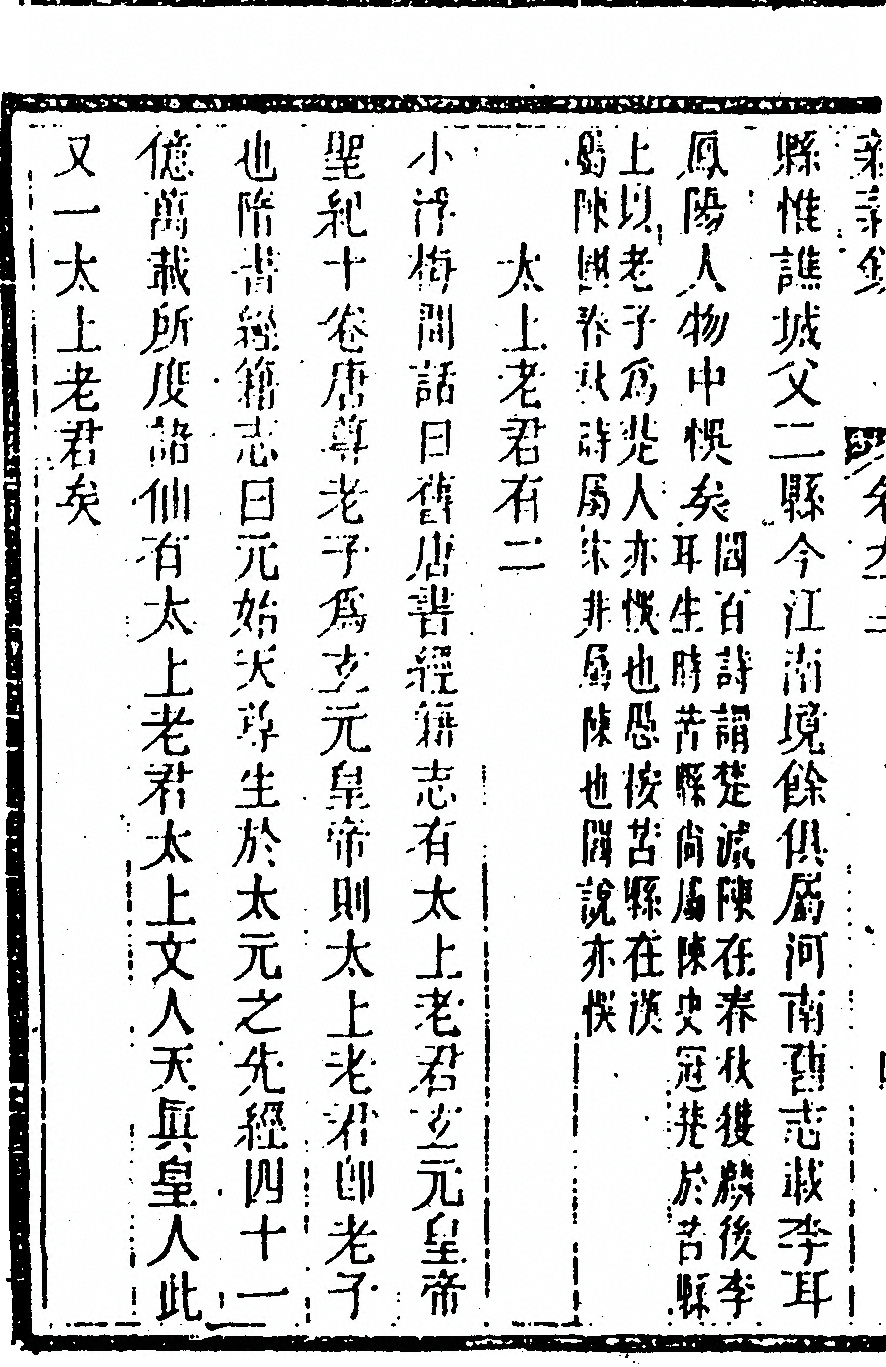 新義錄
縣惟譙城父二縣今江南境餘俱屬河南舊志載李耳
鳳陽人物中悞矣
閻百詩謂楚滅陳在春秋獲麟後李
耳生時苦縣尚屬陳史冠楚於苦縣
上以老子爲楚人亦悞也愚按苦縣在漢
屬陳國春秋詩屬宋非屬陳也閻說亦悞
太上老君有二
小浮梅閒話曰舊唐書經籍志有太上老君玄元皇帝
聖紀十卷唐尊老子爲玄元皇帝則太上老君卽老子
也隋書經籍志曰元始天尊生於太元之先經四十一
億萬載所度諸仙有太上老君太上文人天眞皇人此
又一太上老君矣